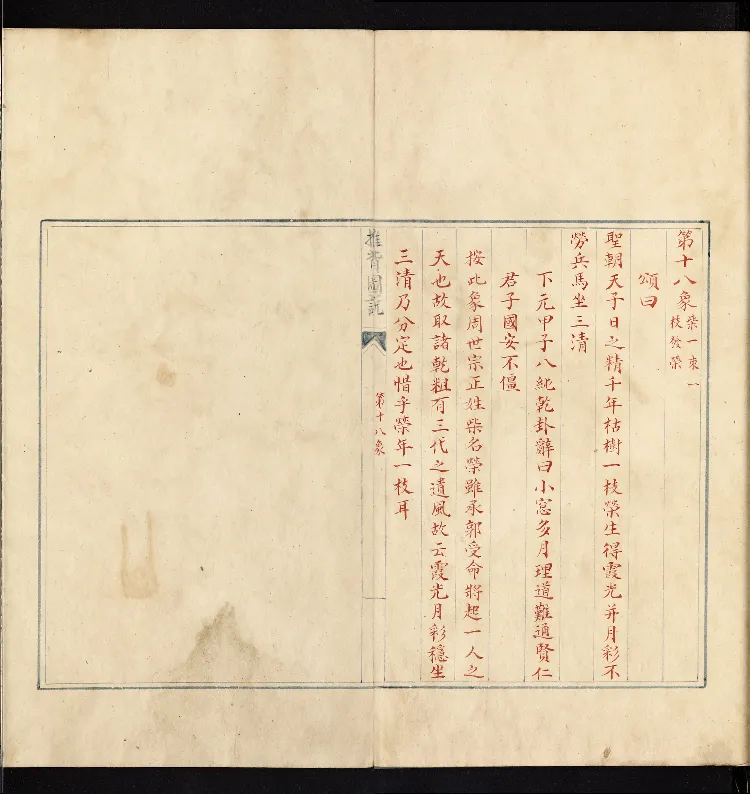 第十八象柴一束一
枝發榮
頌曰
聖朝天子日之精千年枯樹一枝榮生得霞光並月彩不
勞兵馬坐三清
下元甲子八純乾卦辭曰小窓多月理道難通賢仁
君子國安不僵
按此象周世宗正姓柴名榮雖承郭受命將起一人之
天也故取諸乾粗有三代之遺風故云霞光月彩穩坐
三清乃分定也惜乎榮年一枝耳
推背圖說
第十八象